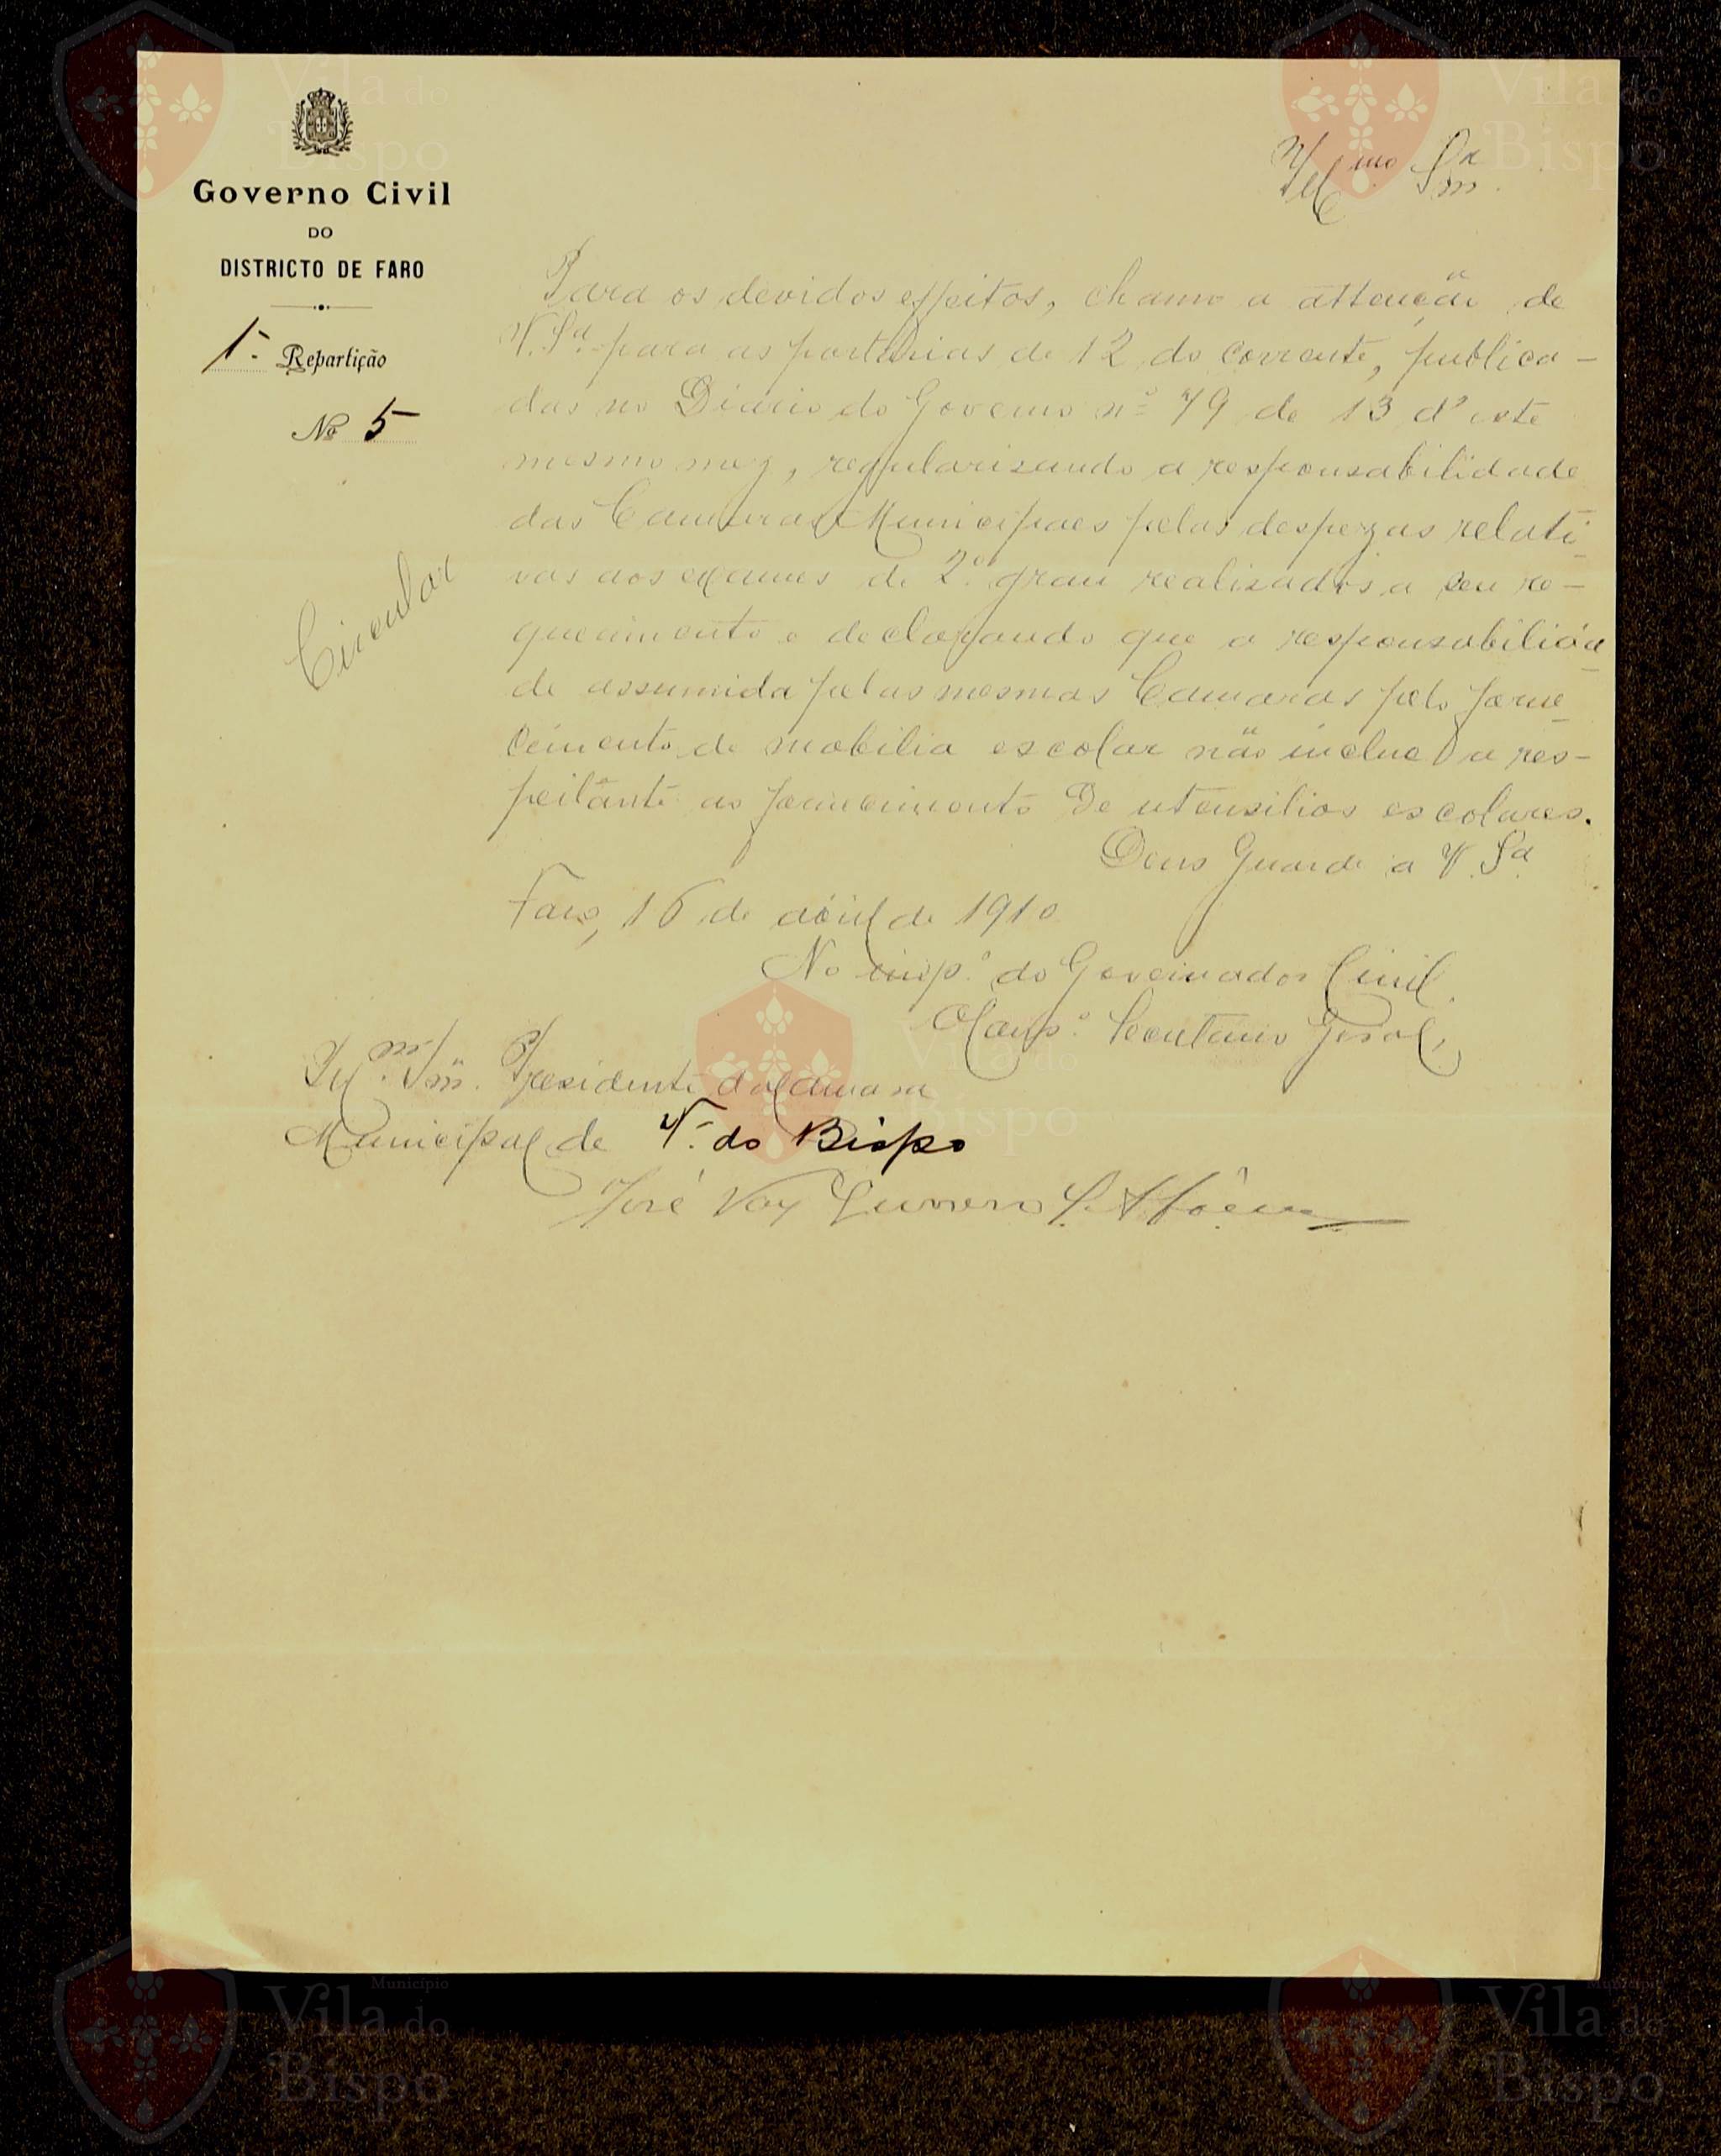 Governo Civil
DO
DISTRICTO DE FARO
1.ª Repartição
Nº 5
Circular
Ill.mo Snr.
Para os devidos effeitos, chamo a attenção de
V. Sª. para as portarias de 12 do corrente, publica-
das no Diario do Governo nº 79 de 13 d'este
mesmo mez, regularizando a responsabilidade
das Camaras Municipaes pelas despezas relati-
vas aos exames de 2.º grau realizados a seu re-
querimento e declarando que a responsabilida-
de assumida pelas mesmas Camaras pelo forne-
cimento de mobilia escolar não inclue a res-
peitante ao fornecimento de utensilios escolares.
Deus Guarde a V. Sª.
Faro, 16 de abril de 1910
No imp.º do Governador Civil,
O Secretario Geral,
Ill.mo Snr. Presidente da Camara
Municipal de V.ª do Bispo
José Vaz Guerreiro
Município
Vila do
Bispo